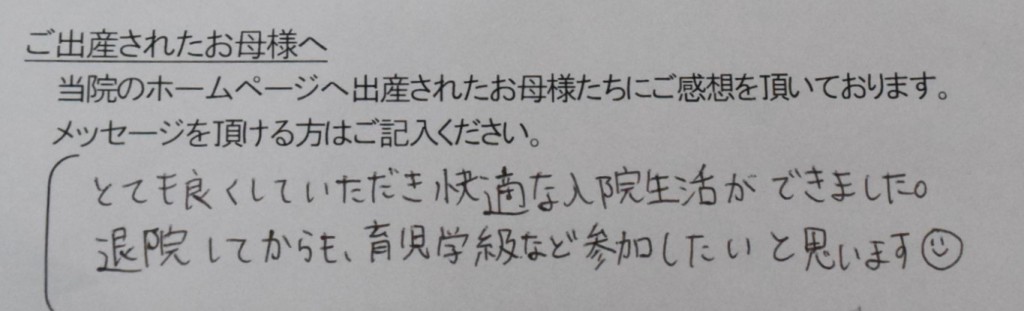 ご出産されたお母様へ
当院のホームページへ出産されたお母様たちにご感想を頂いております。
メッセージを頂ける方はご記入ください。
とても良くしていただき快適な入院生活ができました。
退院してからも、育児学級など参加したいと思います☺